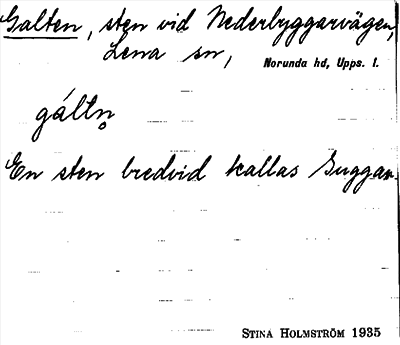 Galten, sten vid Nederbyggarvägen,
Lena sn,
Norunda hd, Upps. l.
gáltn̥
En sten bredvid kallas Suggan.
STINA HOLMSTRÖM 1935